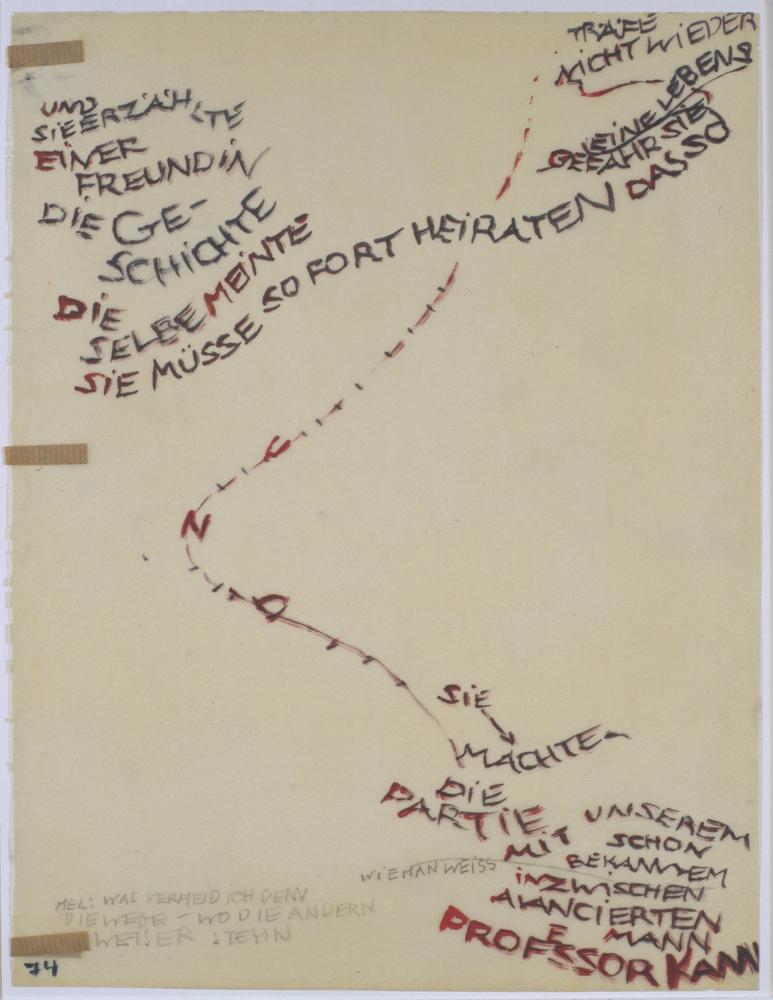 UND
SIE ERZÄHLTE
EINER
FREUNDIN
DIE GE-
SCHICHTE
DIE
SELBE MEINTE
SIE MÜSSE SOFORT HEIRATEN DASSO
GEFAHR SIE
KEINE LEBENS
NICHT WIEDER
TRÄFE
U
N
D
SIE
MACHTE
DIE
PARTIE
MIT UNSEREM
SCHON
WIE MAN WEISS
BEKANNTEM
INZWISCHEN
AVANCIERTEN
MANN
PROFESSOR KANN
MEL: WAS VERMEID ICH DENN
DIE WEGE - WO DIE ANDERN
WEISER STEHN
74